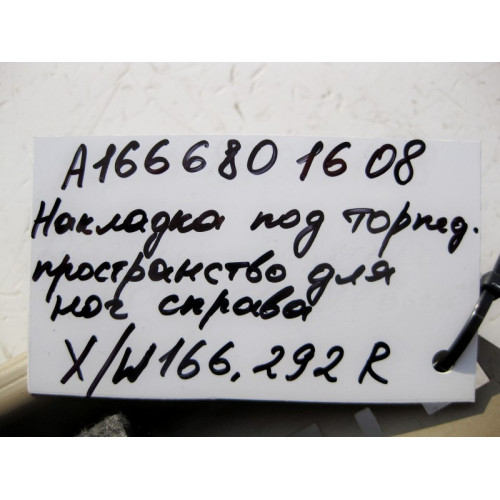 A166 680 16 08
Накладка под торпед.
пространство для
ног справа
X/W166, 292 R